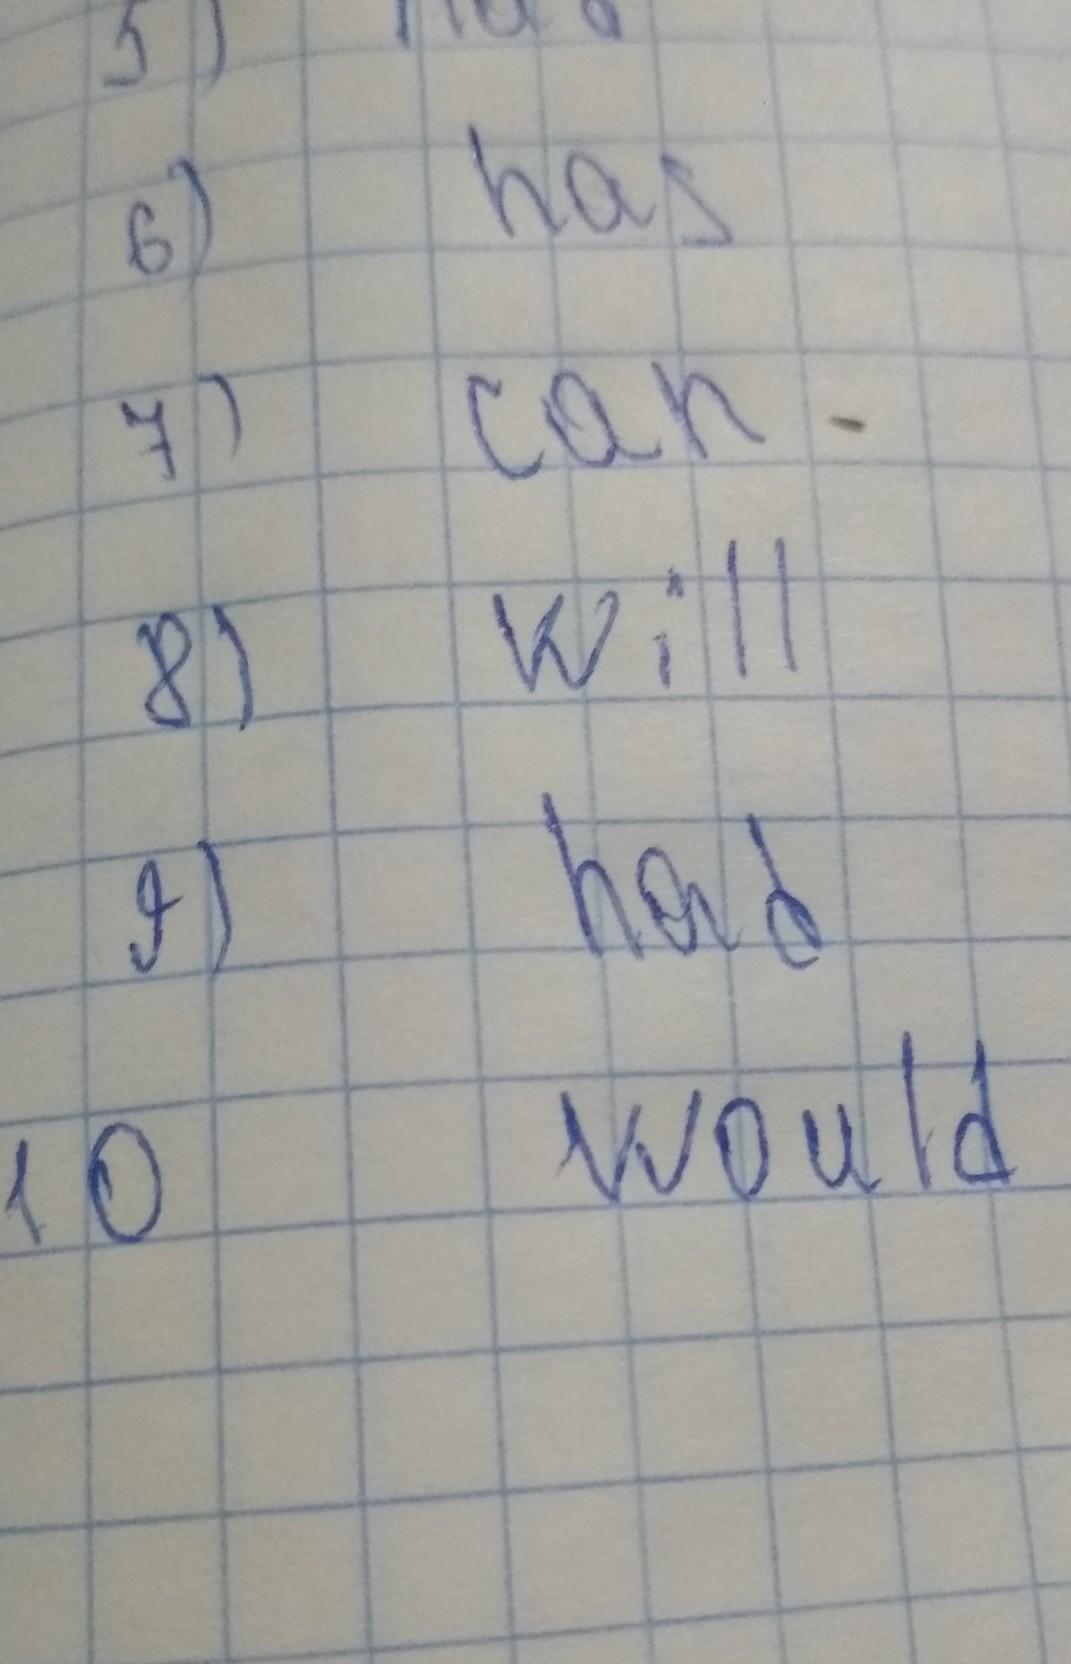 5)
6) has
7) can
8) will
9) had
10 would